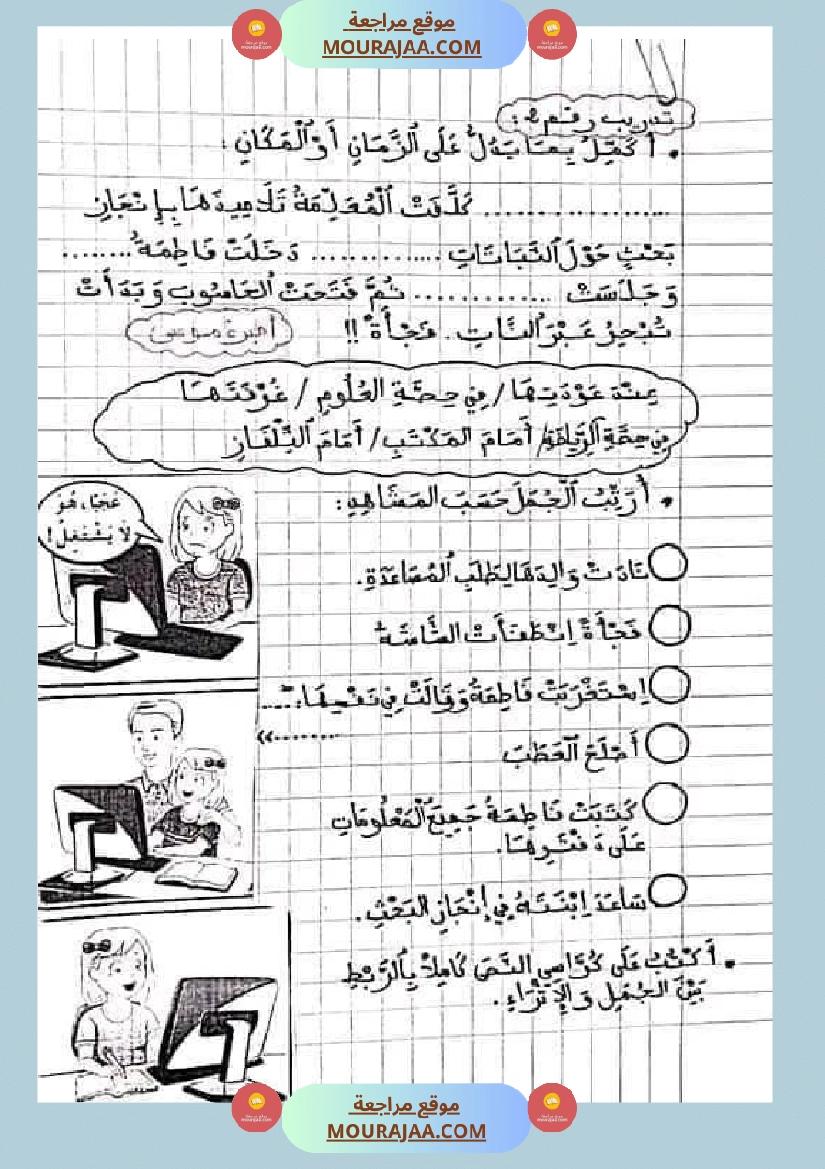 موقع مراجعة
MOURAJAA.COM
تدريب رقم 2:
• أُكَمِّلُ بِمَا يَدُلُّ عَلَى الزَّمَانِ أَوْ الْمَكَانِ:
.................. كَلَّفَتْ الْمُعَلِّمَةُ تَلَامِيذَهَا بِإِنْجَازِ
بَحْثٍ حَوْلَ النَّبَاتَاتِ ................. دَخَلَتْ فَاطِمَةُ ........
وَجَلَسَتْ .............. ثُمَّ فَتَحَتْ الحَاسُوبَ وَبَدَأَتْ
تُبْحِرُ عَبْرَ النَّاتِ. فَجْأَةً !!
عِنْدَ عَوْدَتِهَا / فِي حِصَّةِ العُلُومِ / غُرْفَتَهَا
فِي حِصَّةِ الرِّيَاضَةِ / أَمَامَ المَكْتَبِ / أَمَامَ التِّلْفَازِ
• أُرَتِّبُ الْجُمَلَ حَسَبَ المَشَاهِدِ:
عَجَبًا، هُوَ
لَا يَشْتَغِلُ!
نَادَتْ وَالِدَهَا لِطَلَبِ المُسَاعَدَةِ.
فَجْأَةً اِنْطَفَأَتْ الشَّاشَةُ
اِسْتَغْرَبَتْ فَاطِمَةُ وَقَالَتْ فِي نَفْسِهَا: "....
........»
أَصْلَحَ العَطَبَ
كَتَبَتْ فَاطِمَةُ جَمِيعَ الْمَعْلُومَاتِ
عَلَى دَفْتَرِهَا.
سَاعَدَ اِبْنَتَهُ فِي إِنْجَازِ البَحْثِ.
• أَكْتُبُ عَلَى كُرَّاسِي النَّصَّ كَامِلاً بِالرَّبْطِ
بَيْنَ الجُمَلِ وَالإِثْرَاءِ.
موقع مراجعة
MOURAJAA.COM